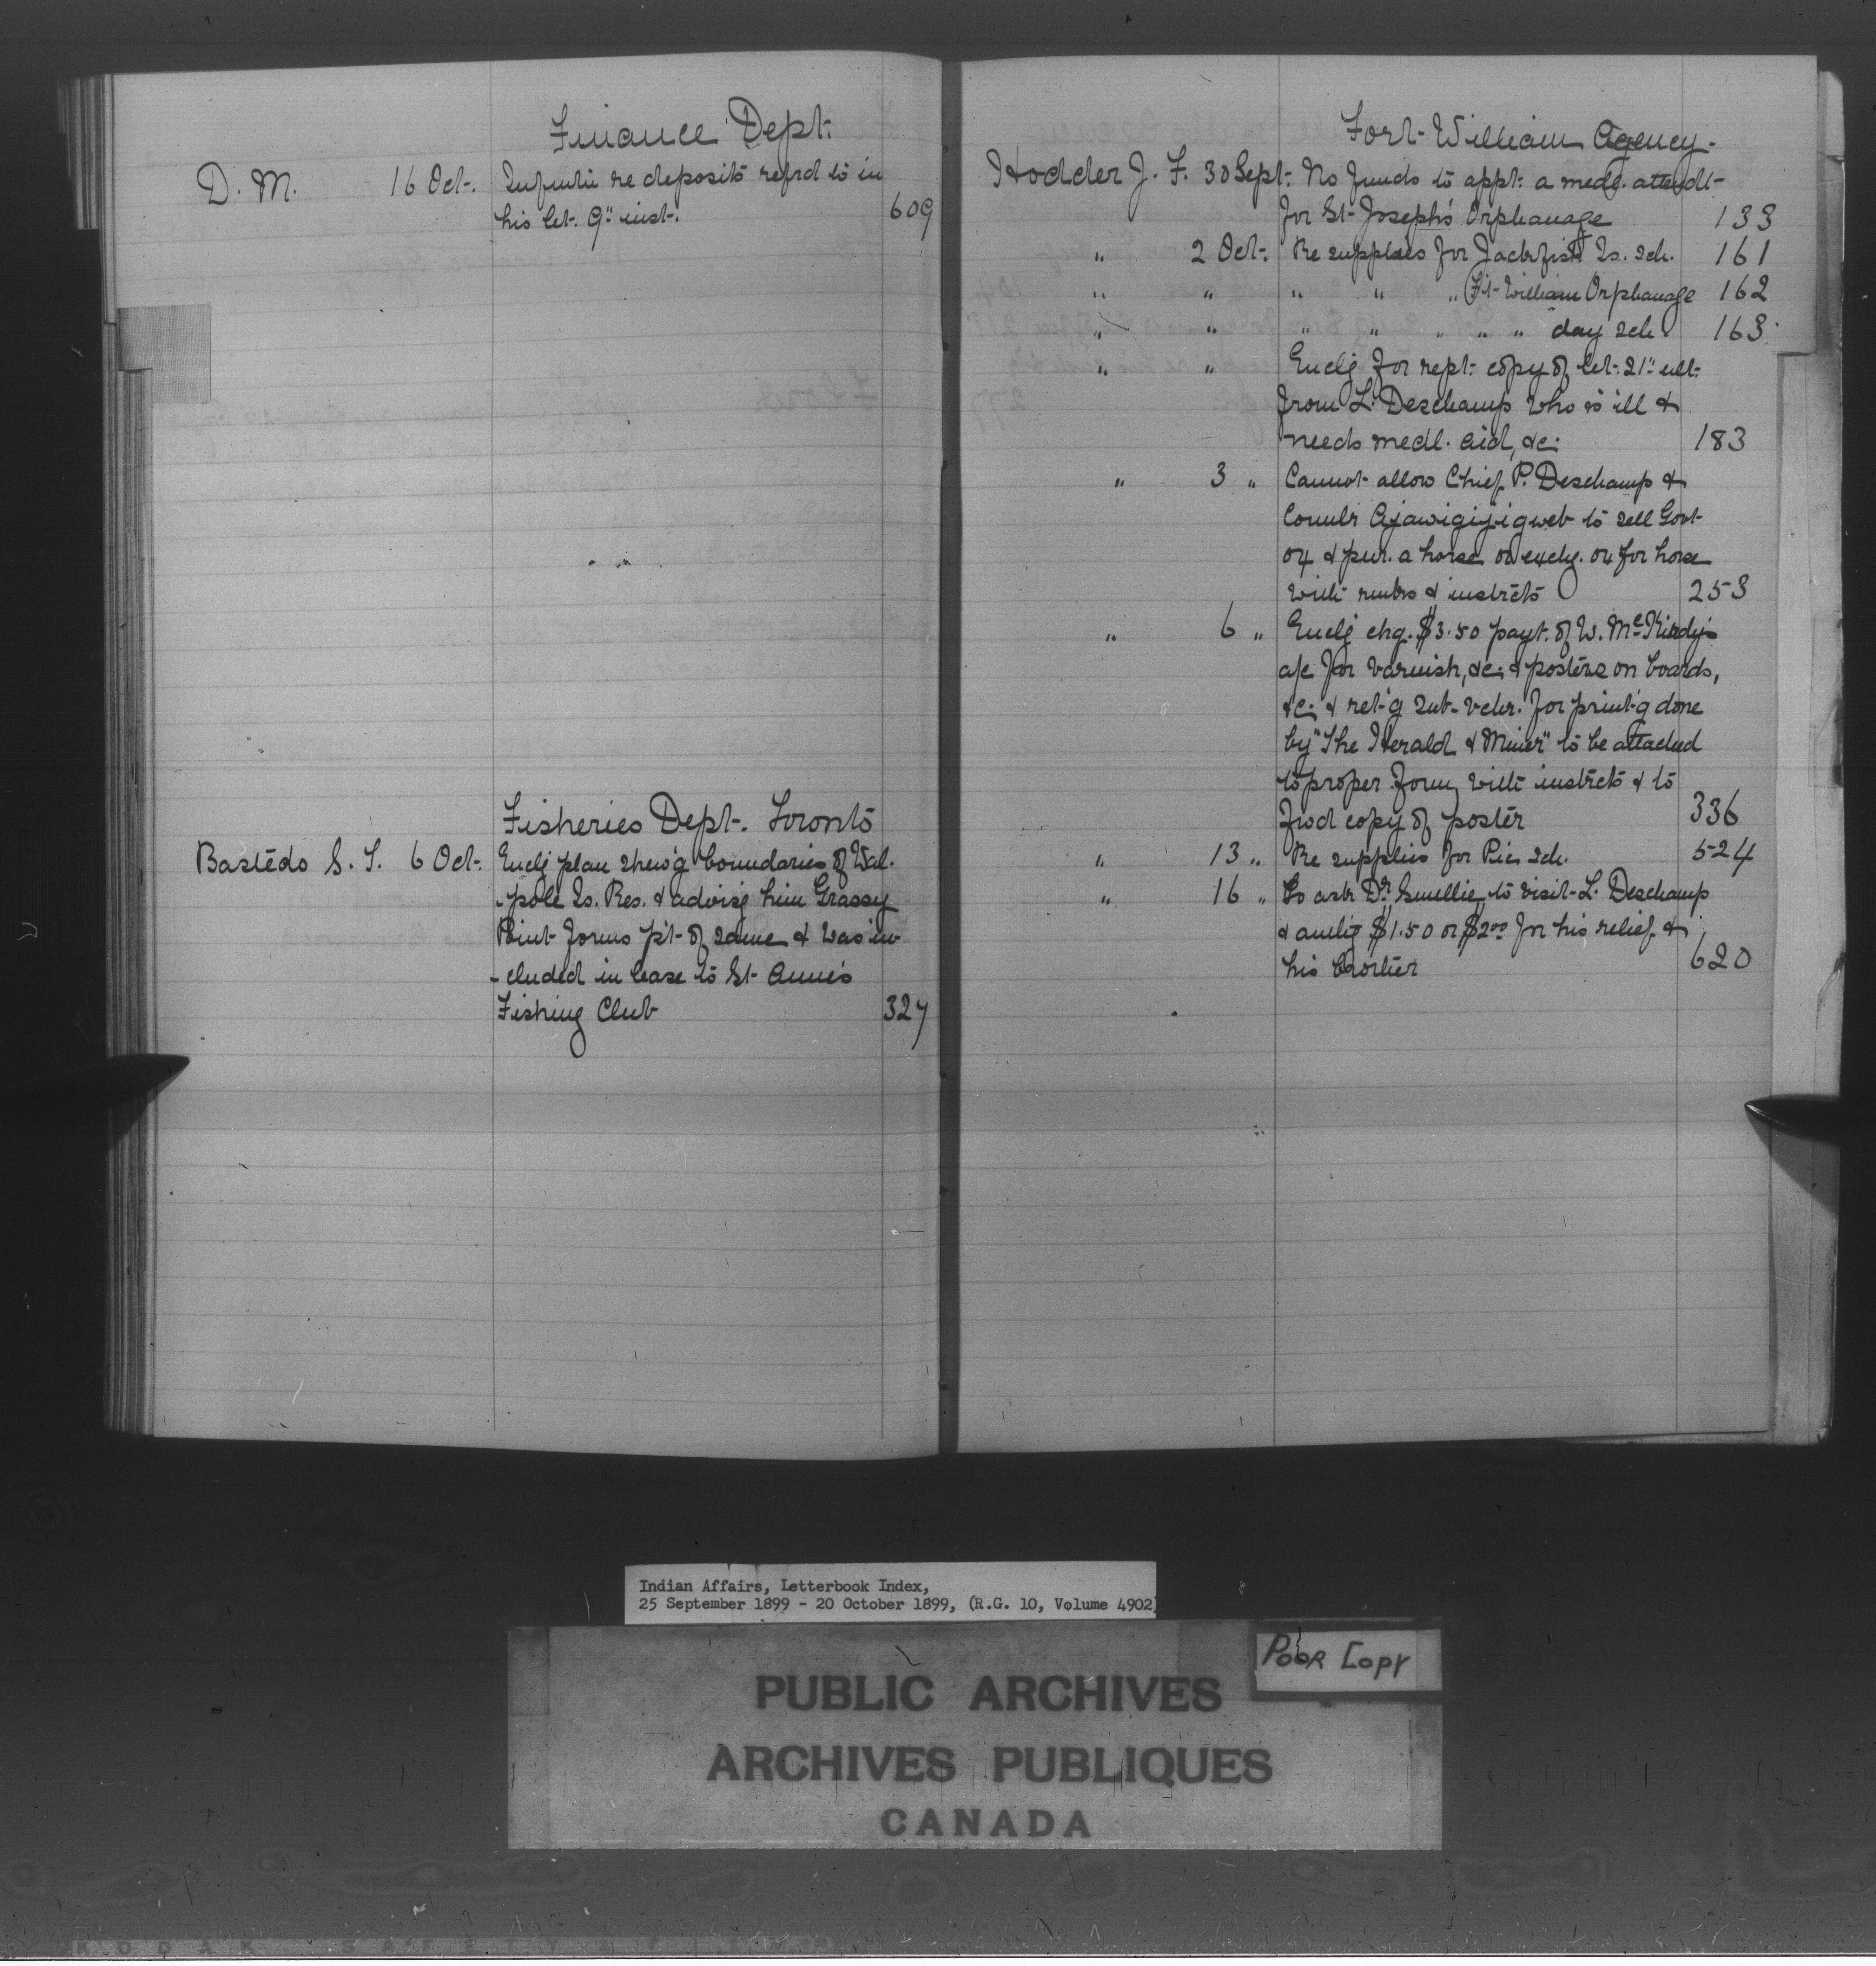 Finance Dept.
D. M. 16 Oct. Inqu re deposits refrd to in
his let. 9" inst. 609
Fisheries Dept. Toronto
Bastedo S. T. 6 Oct. Enclg plan shew'g boundaries of Wal-
-pole Is. Res. & advisg him Grassy
Point forms p't of same & was in-
-cluded in lease to St Anne's
Fishing Club 327
Fort William Agency.
Hodder J. F. 30 Sept. No funds to appt. a medl. attendt
for St Joseph's Orphanage 133
" 2 Oct. Re supplies for Jackfish Is. Sch. 161
" " " " " Ft William Orphanage 162
" " " " " " " day Sch. 163
" " Enclg for rept. copy of let. 21" ult.
from L. Deschamp who is ill &
needs medl. aid, &c. 183
" 3 " Cannot allow Chief P. Deschamp &
Counlr Ajawigijigweb to sell Govt
ox & pur. a horse or exchg. ox for horse
with remks & instrcts 253
" 6 " Enclg chq. $3.50 payt. of W. McKirdy's
a/c for varnish, &c. & posters on boards,
&c. & ret'g sub-vchr. for print'g done
by "The Herald & Miner" to be attached
to proper form with instrcts & to
fwd copy of poster 336
" 13 " Re supplies for Pic Sch. 524
" 16 " To ask Dr. Smellie to visit L. Deschamp
& $1.50 or $2.00 for his relief &
his 620
Indian Affairs, Letterbook Index,
25 September 1899 - 20 October 1899, (R.G. 10, Volume 4902)
Poor Copy
PUBLIC ARCHIVES
ARCHIVES PUBLIQUES
CANADA
KODAK SAFETY